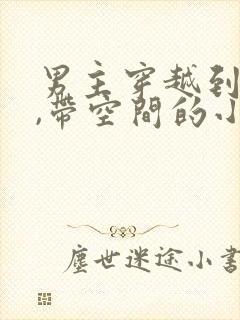 男主穿越到
,帶空間的小
塵世迷途小書